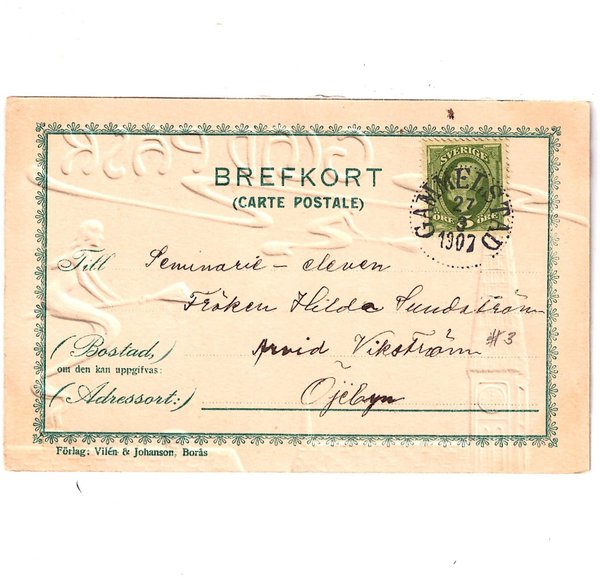 BREFKORT
(CARTE POSTALE)
SVERIGE
ÖRE 5 ÖRE
GAMMELSTAD
27
3
1907
Till Seminarie-eleven
Fröken Hilda Sundström
(Bostad,) Arvid Vikström #3
om den kan uppgifvas:
(Adressort:) Öjebyn
Förlag: Vilén & Johanson, Borås
GLAD PÅSK